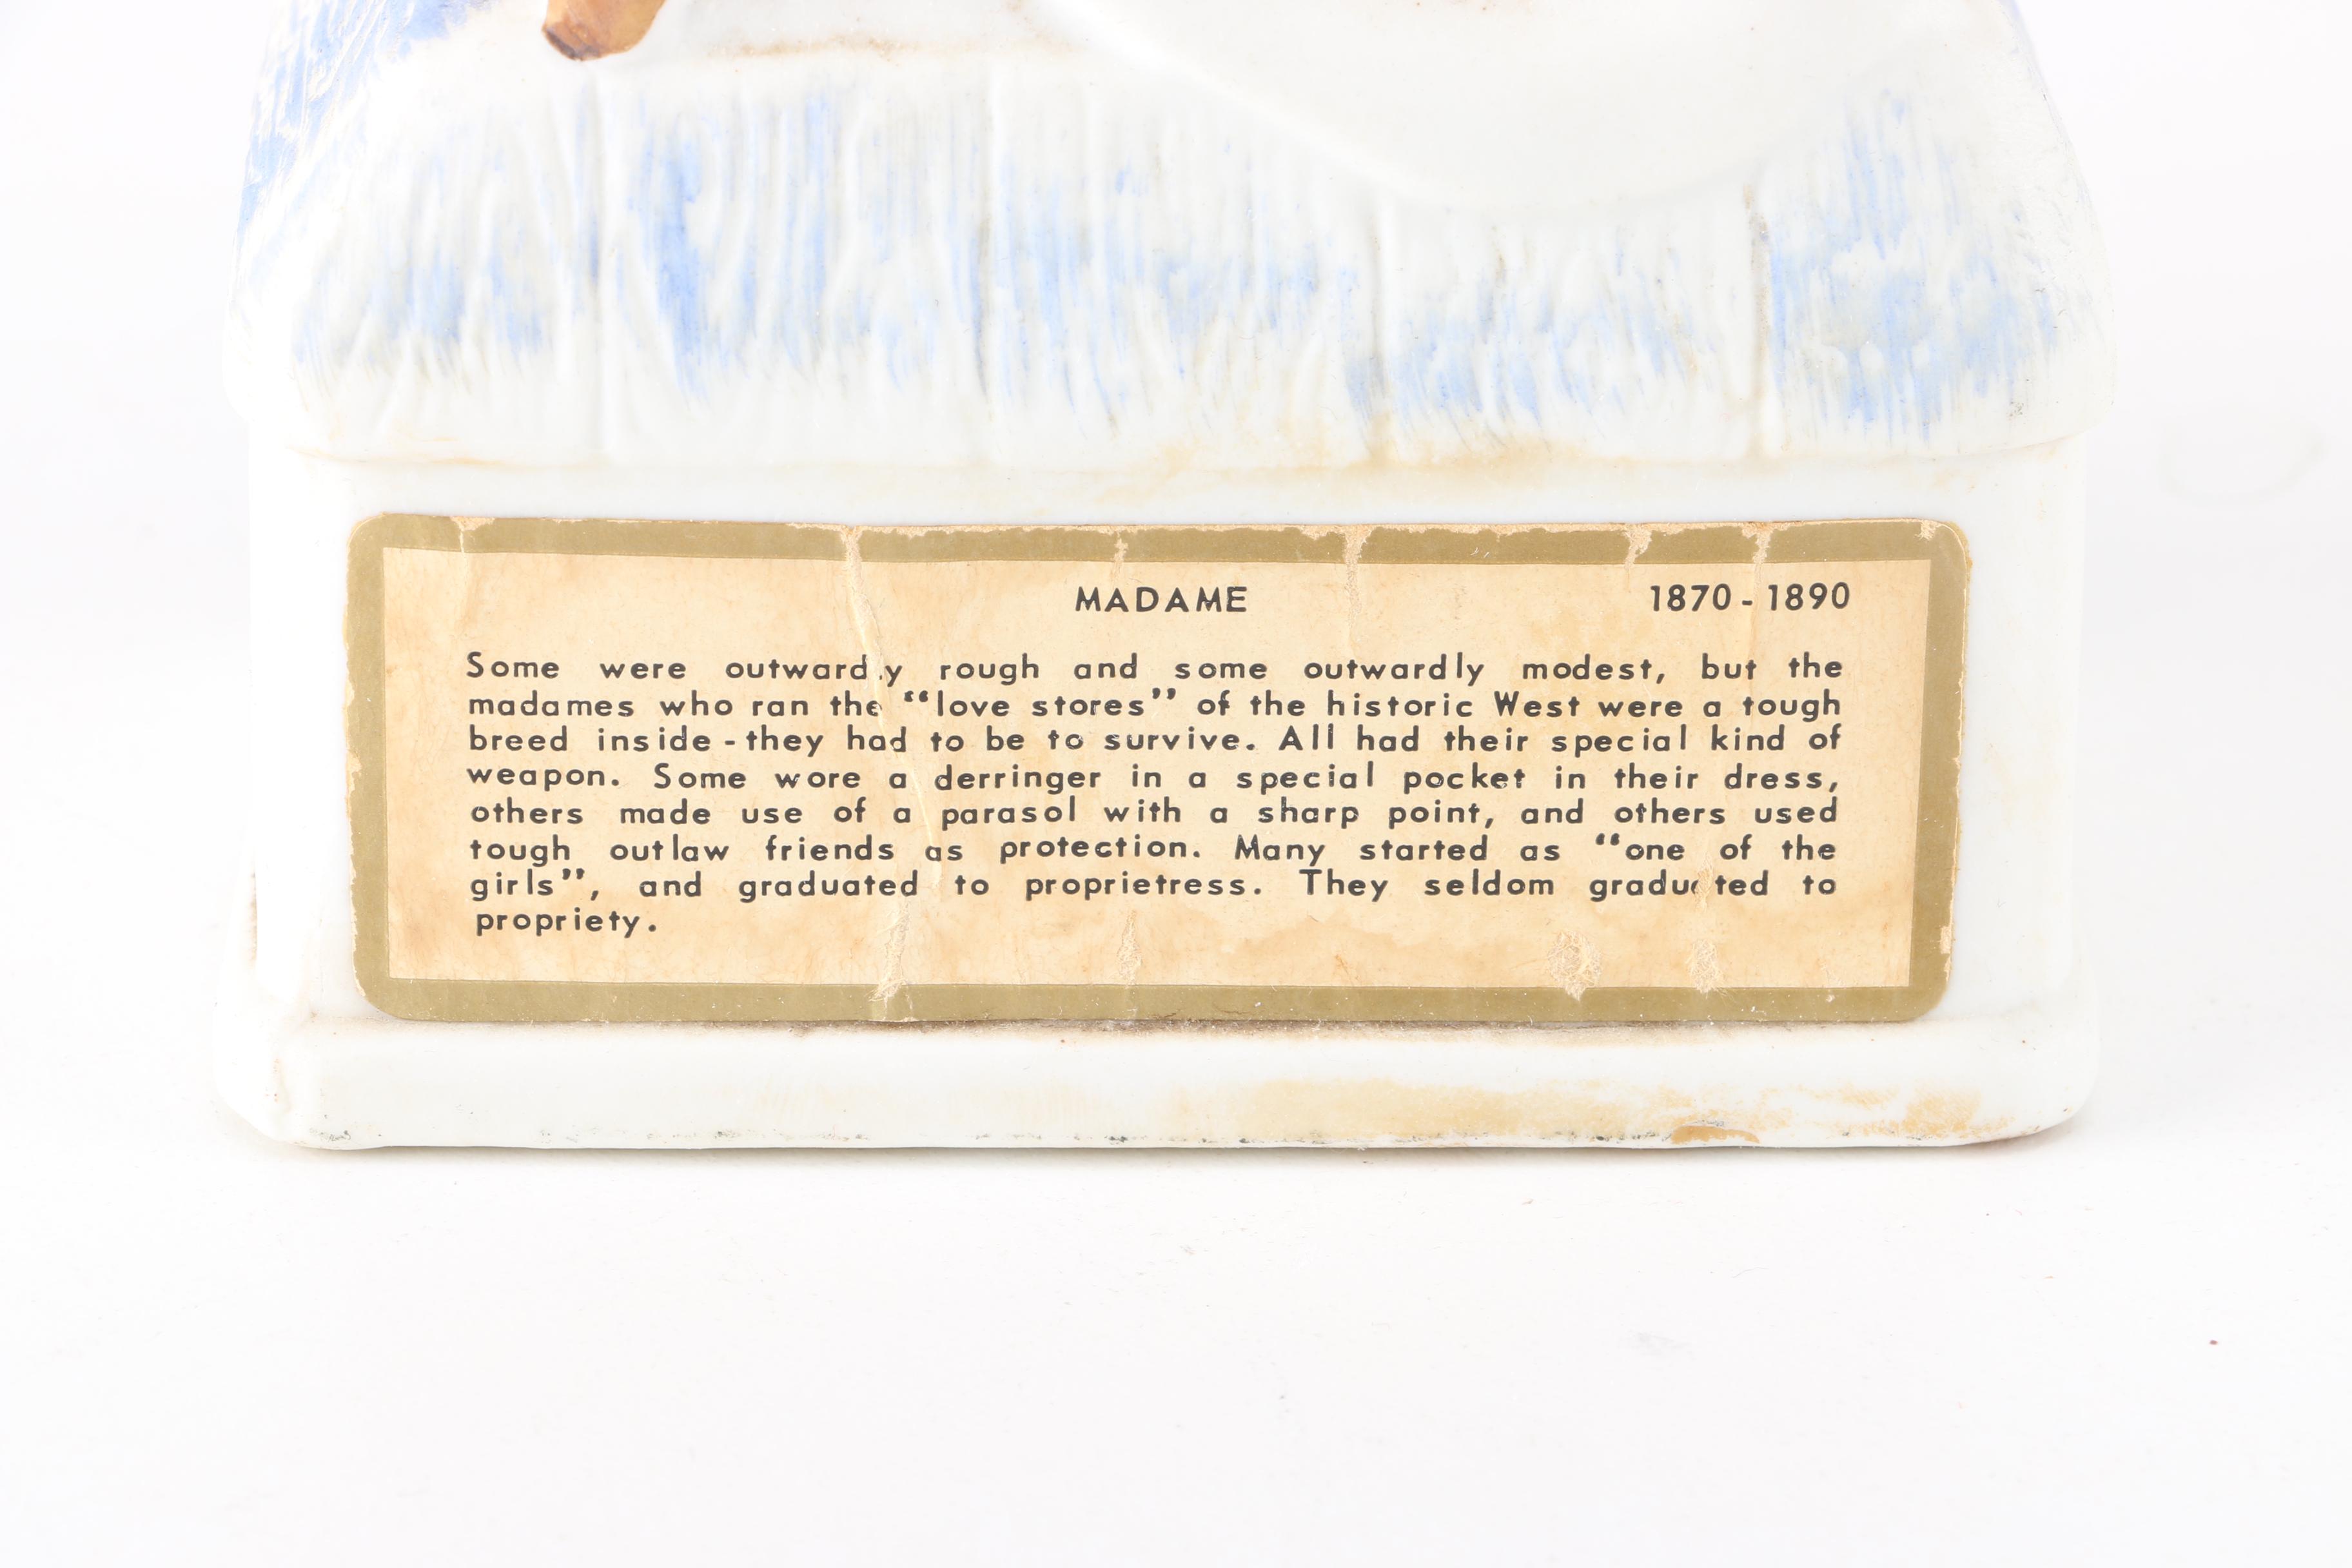 MADAME 1870-1890
Some were outwardly rough and some outwardly modest, but the
madames who ran the “love stores” of the historic West were a tough
breed inside-they had to be to survive. All had their special kind of
weapon. Some wore a derringer in a special pocket in their dress,
others made use of a parasol with a sharp point, and others used
tough outlaw friends as protection. Many started as “one of the
girls”, and graduated to proprietress. They seldom graduated to
propriety.